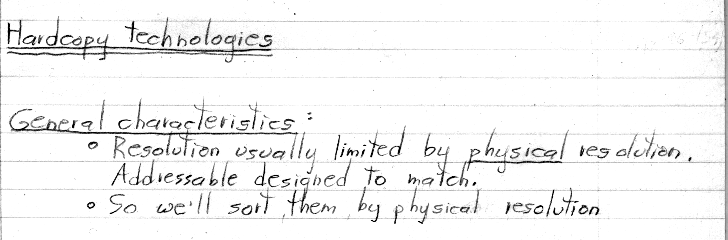 Hardcopy technologies
General characteristics :
• Resolution usually limited by physical resolution.
Addressable designed to match.
• So we'll sort them by physical resolution